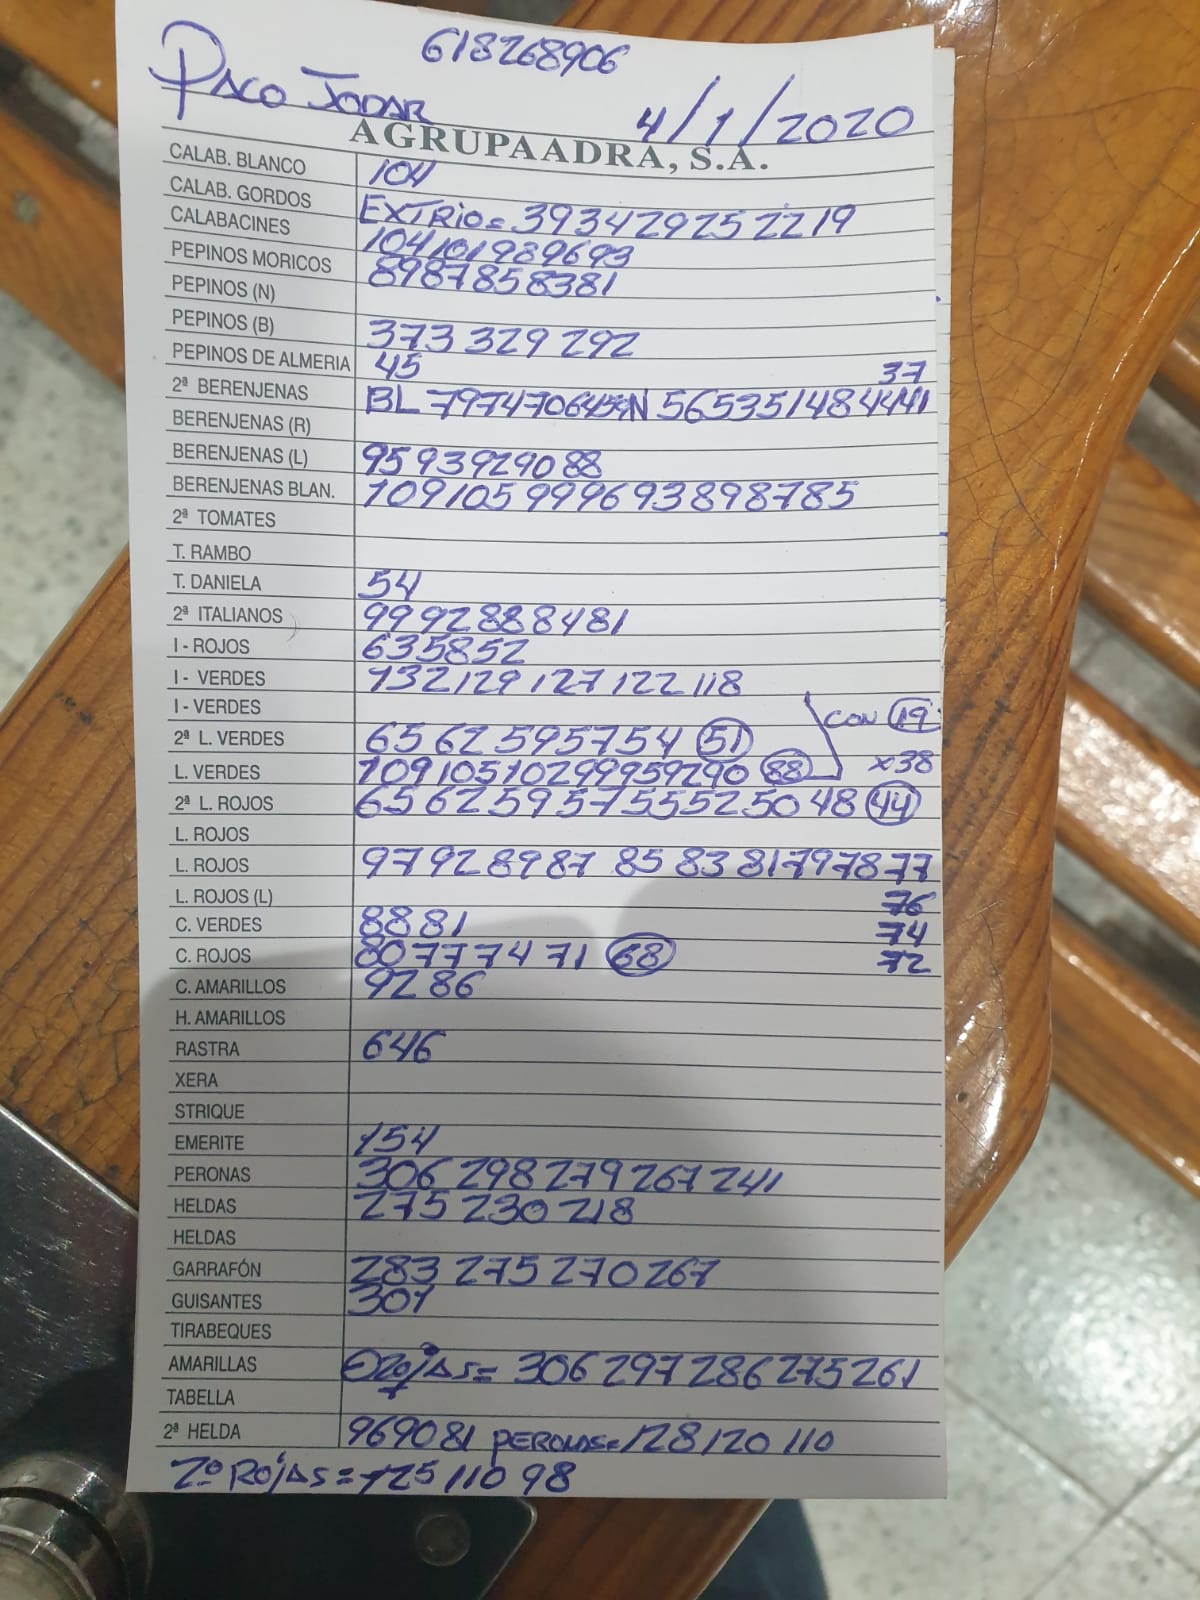 618268906
PACO JODAR 4/1/2020
AGRUPAADRA, S.A.
CALAB. BLANCO 104
CALAB. GORDOS EXTRIO= 3934292522 19
CALABACINES 104101989693
PEPINOS MORICOS 8987858381
PEPINOS (N)
PEPINOS (B) 373 329 292
PEPINOS DE ALMERIA 45 37
2ª BERENJENAS BL 79747064 N 56535148 4441
BERENJENAS (R)
BERENJENAS (L) 9593929088
BERENJENAS BLAN. 109105 999693898785
2ª TOMATES
T. RAMBO
T. DANIELA 54
2ª ITALIANOS 9992888481
I - ROJOS 635852
I - VERDES 132129127122118
I - VERDES CON 19
2ª L. VERDES 6562595754 51
L. VERDES 10910510299959290 88 x38
2ª L. ROJOS 6562595755525048 44
L. ROJOS
L. ROJOS 97928987 85838179 7877
L. ROJOS (L) 76
C. VERDES 8881 74
C. ROJOS 80777471 68 72
C. AMARILLOS 9286
H. AMARILLOS
RASTRA 646
XERA
STRIQUE
EMERITE 154
PERONAS 306 298 279 267 241
HELDAS 275 230 218
HELDAS
GARRAFÓN 283 275 270 267
GUISANTES 301
TIRABEQUES
AMARILLAS ROJAS= 306 297 286 275 261
TABELLA
2ª HELDA 969081 PERONAS=128120 110
2º ROJAS=125110 98